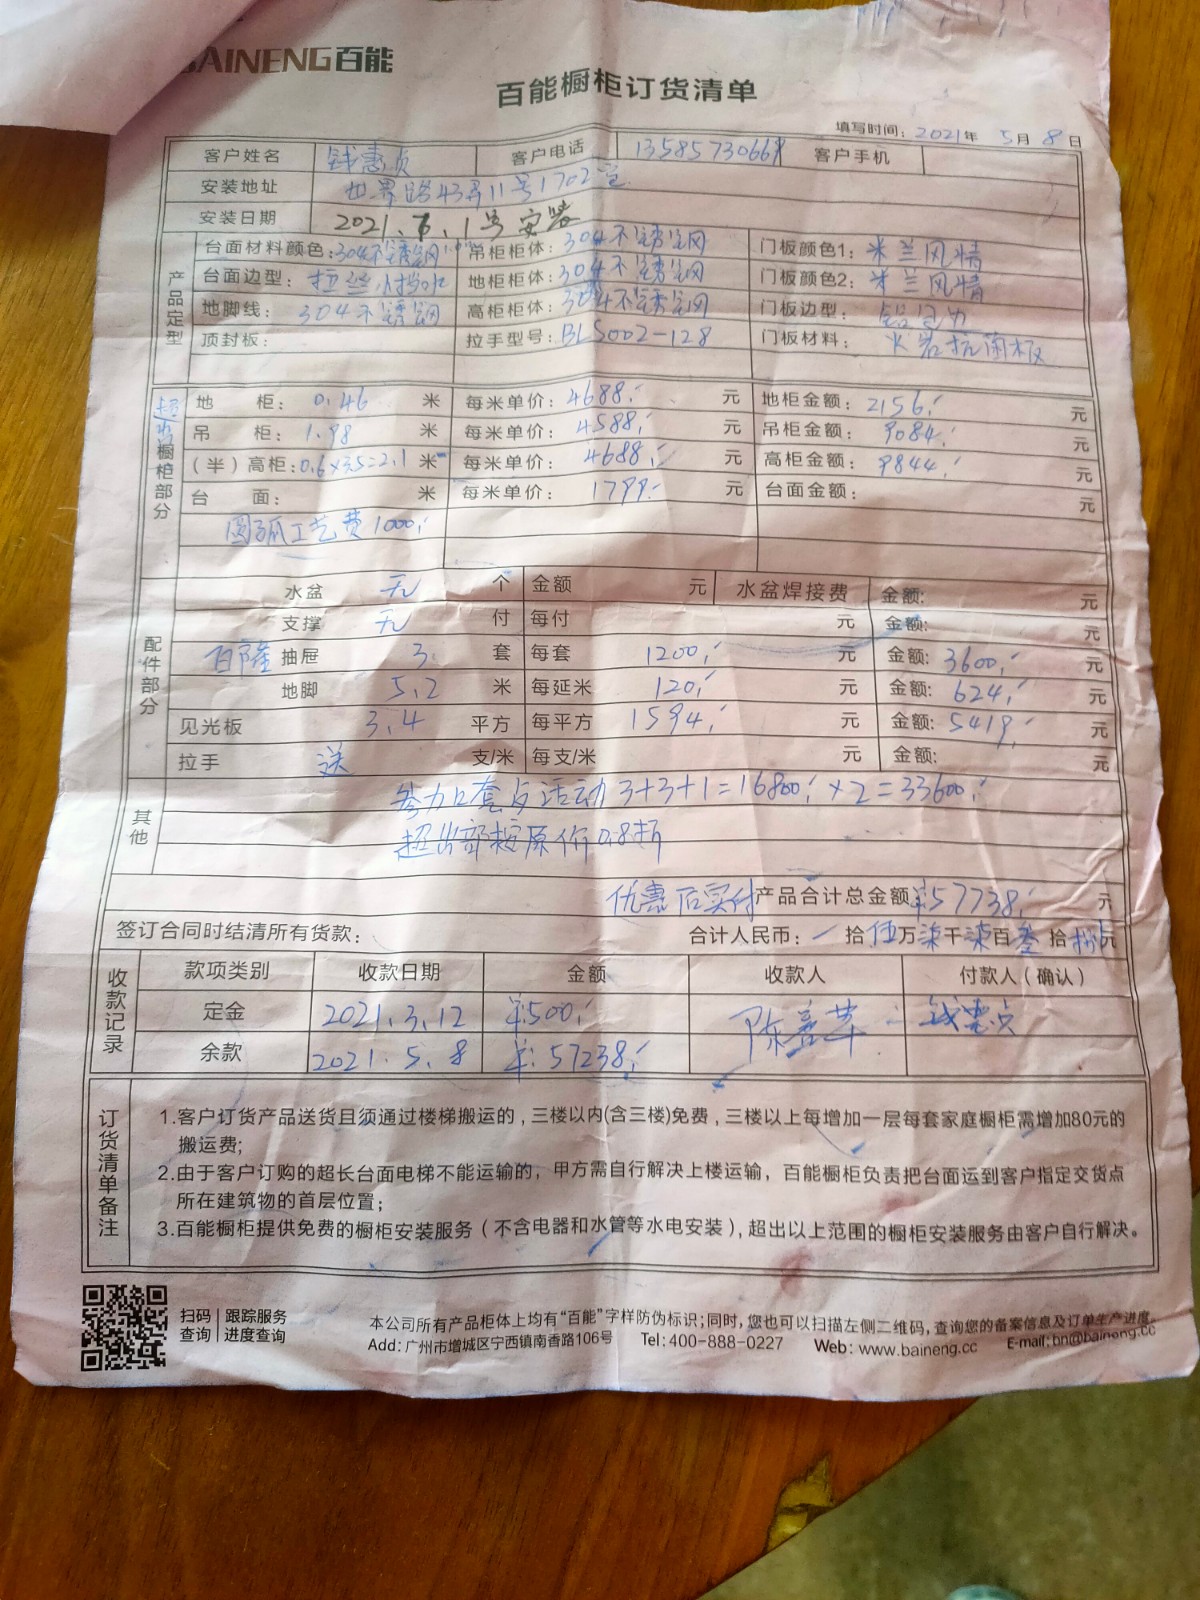 BAINENG百能
百能橱柜订货清单
填写时间：2021年 5月 8日
客户姓名 钱惠贞 客户电话 客户手机
安装地址 世界路43弄11号1702室
安装日期 2021.6.1号安装
产品定型
台面材料颜色：304不锈钢 吊柜柜体：304不锈钢 门板颜色1：米兰风情
台面边型：拉丝小挡水 地柜柜体：304不锈钢 门板颜色2：米兰风情
地脚线：304不锈钢 高柜柜体：304不锈钢 门板边型：
顶封板： 拉手型号：BL5002-128 门板材料：火岩抗菌板
橱柜部分
地 柜：0.46 米 每米单价：4688 元 地柜金额：2156 元
吊 柜：1.98 米 每米单价：4588 元 吊柜金额：9084 元
（半）高柜：0.6×3.5=2.1 米 每米单价：4688 元 高柜金额：9844 元
台 面： 米 每米单价：1799 元 台面金额： 元
圆弧工艺费1000
配件部分
水盆 无 个 金额 元 水盆焊接费 金额: 元
支撑 无 付 每付 元 金额: 元
百隆 抽屉 3 套 每套 1200 元 金额: 3600 元
地脚 5.2 米 每延米 120 元 金额: 624 元
见光板 3.4 平方 每平方 1594 元 金额: 5419 元
拉手 送 支/米 每支/米 元 金额: 元
其他
参加口套占活动3+3+1=16800×2=33600
超出部按原价0.8折
优惠后实付 产品合计总金额 ¥57738 元
签订合同时结清所有货款： 合计人民币： 拾伍万柒千柒百叁拾捌元
收款记录
款项类别 收款日期 金额 收款人 付款人（确认）
定金 2021.3.12 ¥:500 陈 钱惠贞
余款 2021.5.8 ¥:57238
订货清单备注
1.客户订货产品送货且须通过楼梯搬运的，三楼以内(含三楼)免费，三楼以上每增加一层每套家庭橱柜需增加80元的
搬运费;
2.由于客户订购的超长台面电梯不能运输的，甲方需自行解决上楼运输，百能橱柜负责把台面运到客户指定交货点
所在建筑物的首层位置；
3.百能橱柜提供免费的橱柜安装服务（不含电器和水管等水电安装），超出以上范围的橱柜安装服务由客户自行解决。
扫码 跟踪服务
查询 进度查询
本公司所有产品柜体上均有“百能”字样防伪标识；同时，您也可以扫描左侧二维码，查询您的备案信息及订单生产进度。
Add: 广州市增城区宁西镇南香路106号 Tel: 400-888-0227 Web: www.baineng.cc E-mail: bn@baineng.cc